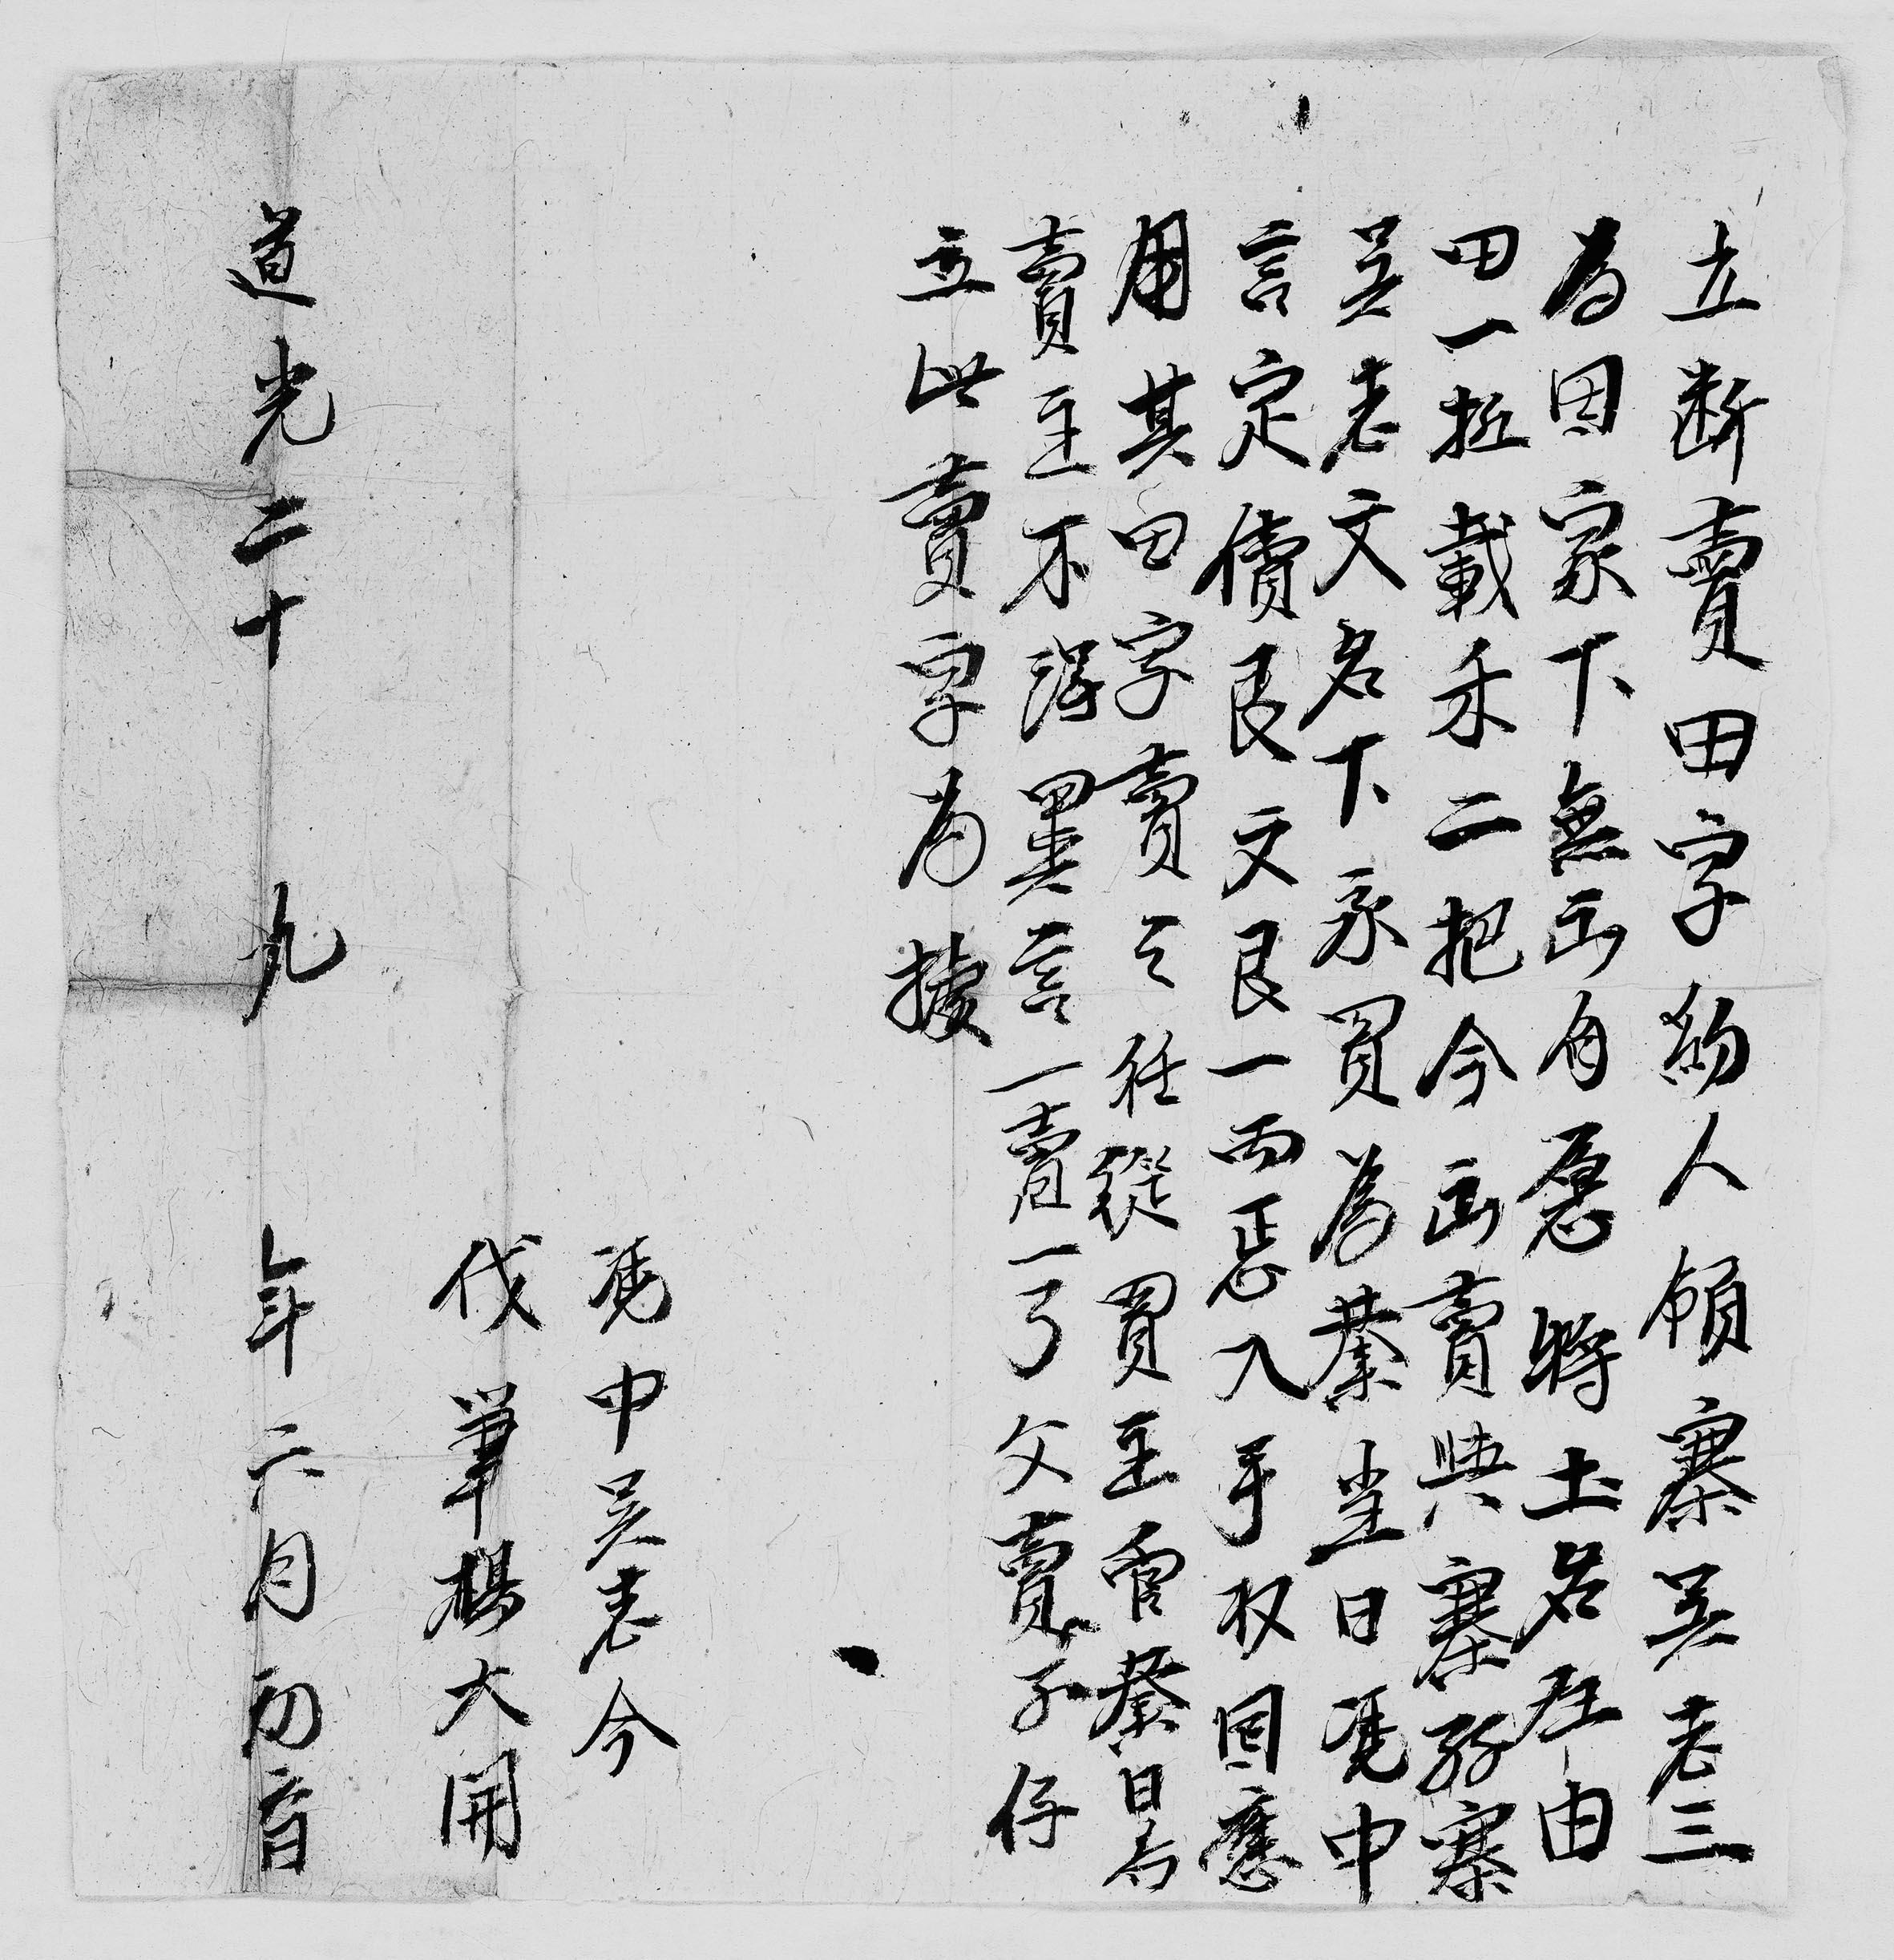 立断賣田字約人領寨吴老三
為因家下無出自愿將土名在由
田一坵載禾二把今出賣與寨孖寨
吴老文名下永買為業当日凴中
言定價艮文艮一両正入手收回應
用其田字賣之任從買主管業日后
賣主不得異言一賣一了父賣子休
立此賣字為據
凴中吴老今
代筆楊大開
道光二十九年六月初六日